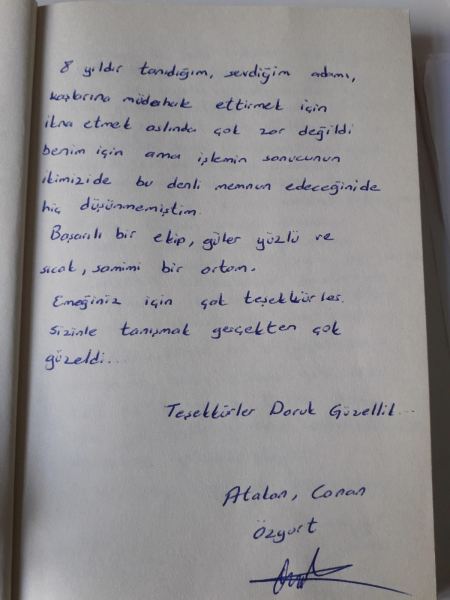 8 yıldır tanıdığım, sevdiğim adamı,
kaşlarına müdahale ettirmek için
ikna etmek aslında çok zor değildi
benim için ama işlemin sonucunun
ikimizide bu denli memnun edeceğinide
hiç düşünmemiştim.
Başarılı bir ekip, güler yüzlü ve
sıcak, samimi bir ortam.
Emeğiniz için çok teşekkürler.
Sizinle tanışmak gerçekten çok
güzeldi...
Teşekkürler Doruk Güzellik...
Atakan, Canan
Özyurt